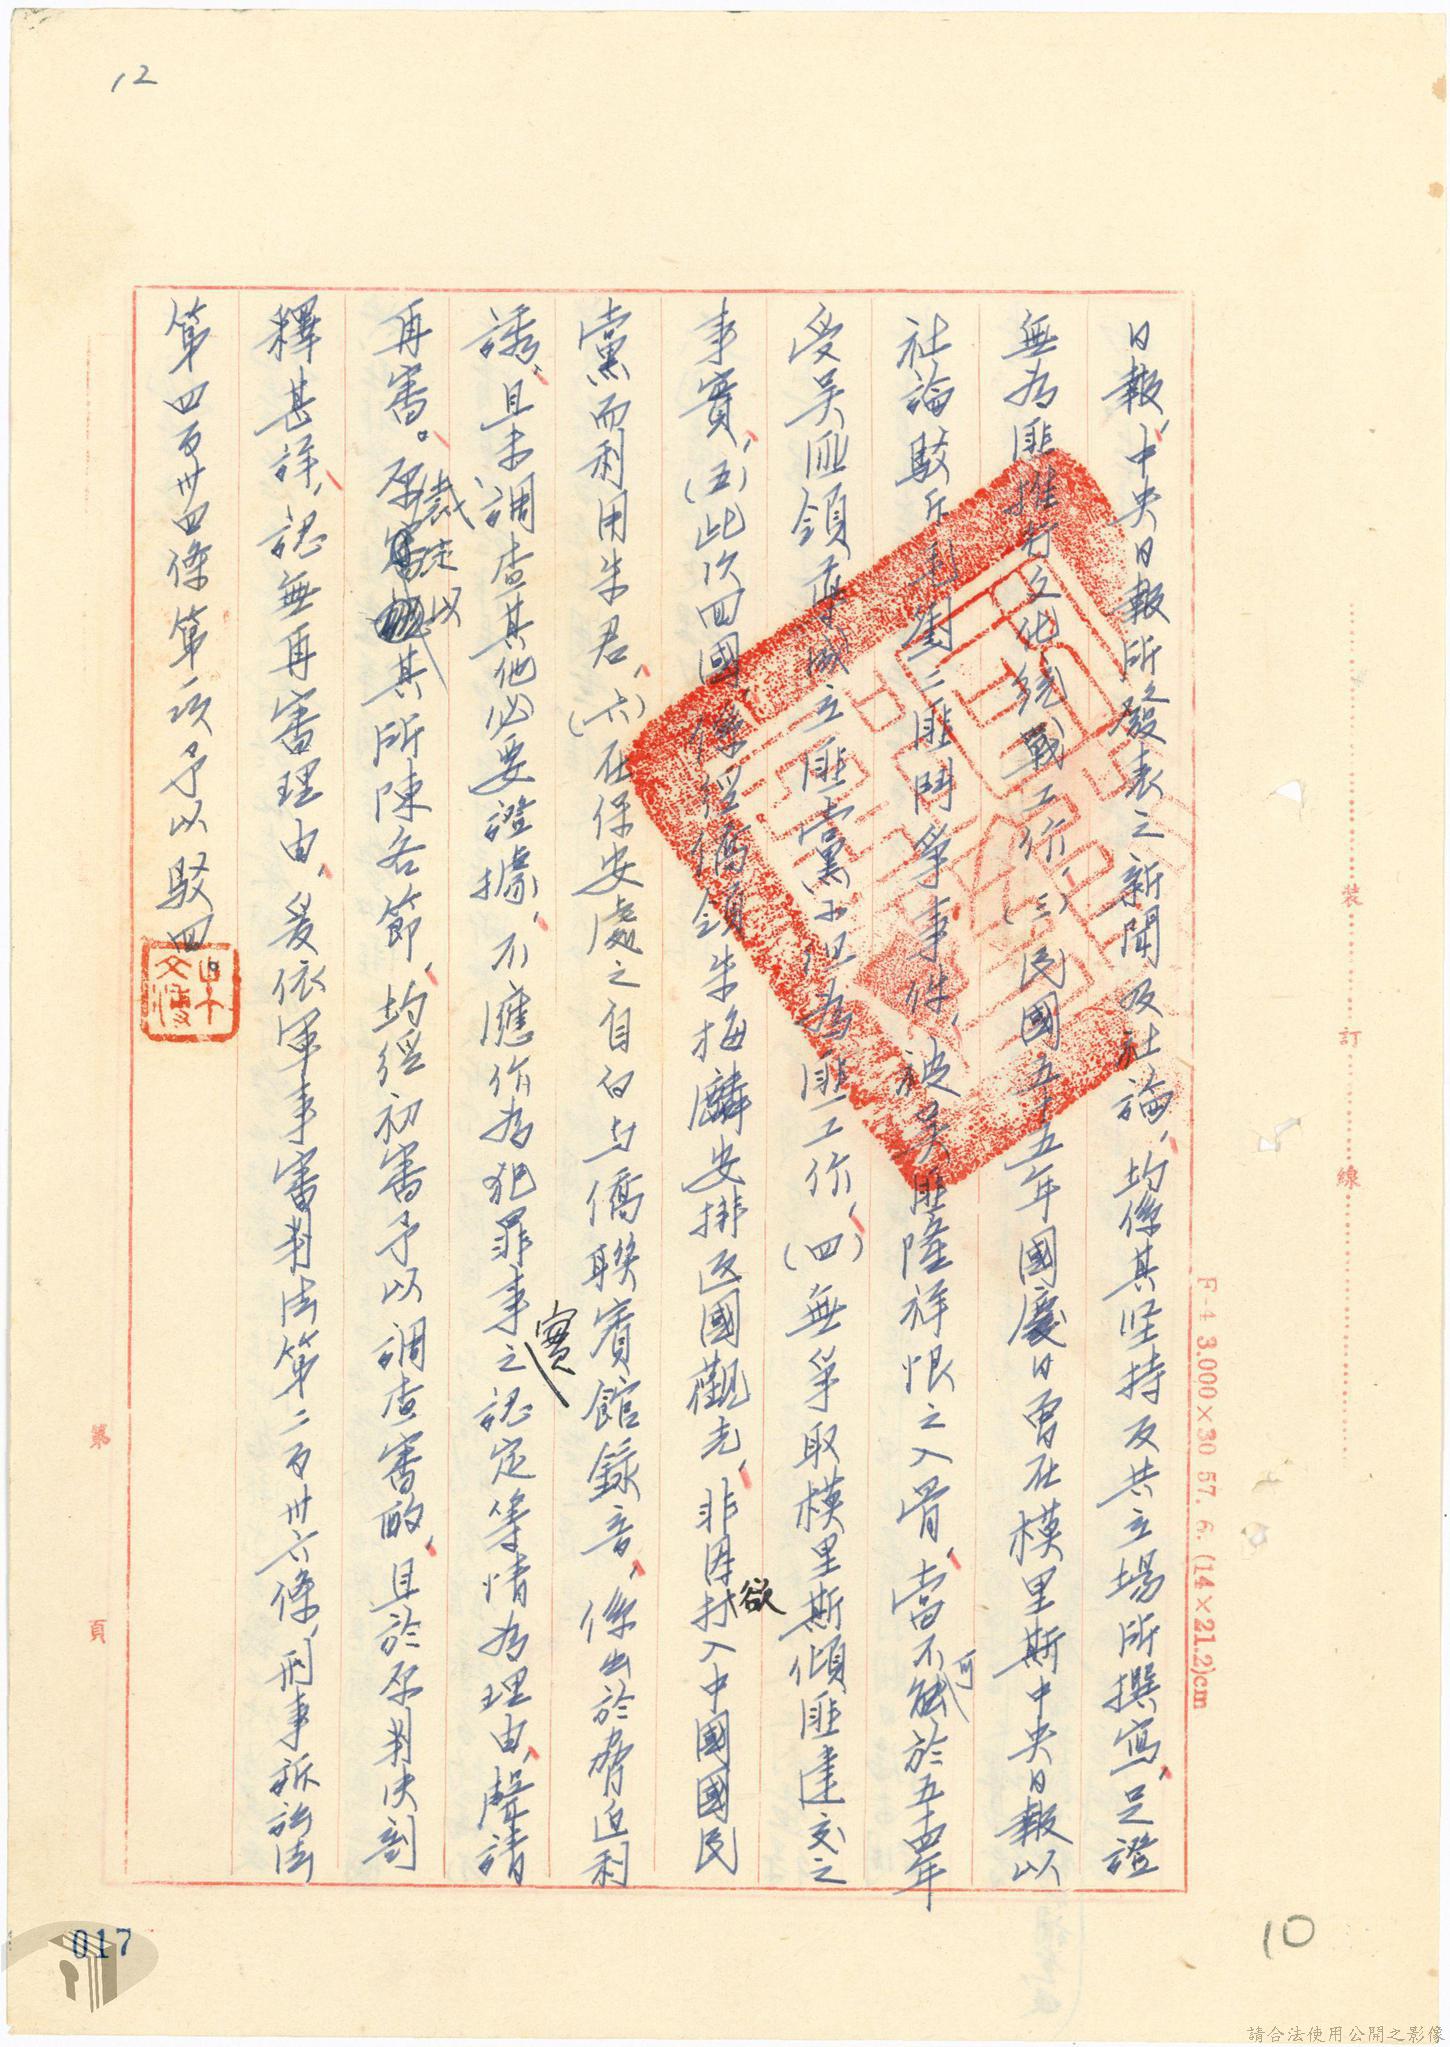 12
日報、中央日報所發表之新聞及社論、均係其坚持反共立場所撰寫、足證
無為匪推行文化統戰工作、(三)民國五十五年國慶日曾在模里斯中央日報以
社論駁斥毛劉二匪鬥爭事件、被吳匪隆祥恨之入骨、當不可於五十四年
受吳匪領導成立匪黨小組為匪工作、(四)無爭取模里斯傾匪建交之
事實、(五)此次回國、係經僑領朱梅麟安排返國觀光、非因欲打入中國國民
黨而利用朱君、(六)在保安處之自白与僑聯賓館錄音、係出於脅迫利
誘、且未調查其他必要證據、不應作為犯罪事實之認定等情為理由、聲請
再審。原裁定以其所陳各節、均經初審予以調查審酌、且於原判決剖
釋甚詳、認無再審理由、爰依軍事審判法第二百卅六條、刑事訴訟法
第四百卅四條第一項予以駁回。
裝
訂
線
F-4 3.000×30 57. 6. (14×21.2)cm
第
頁
10
017
請合法使用公開之影像